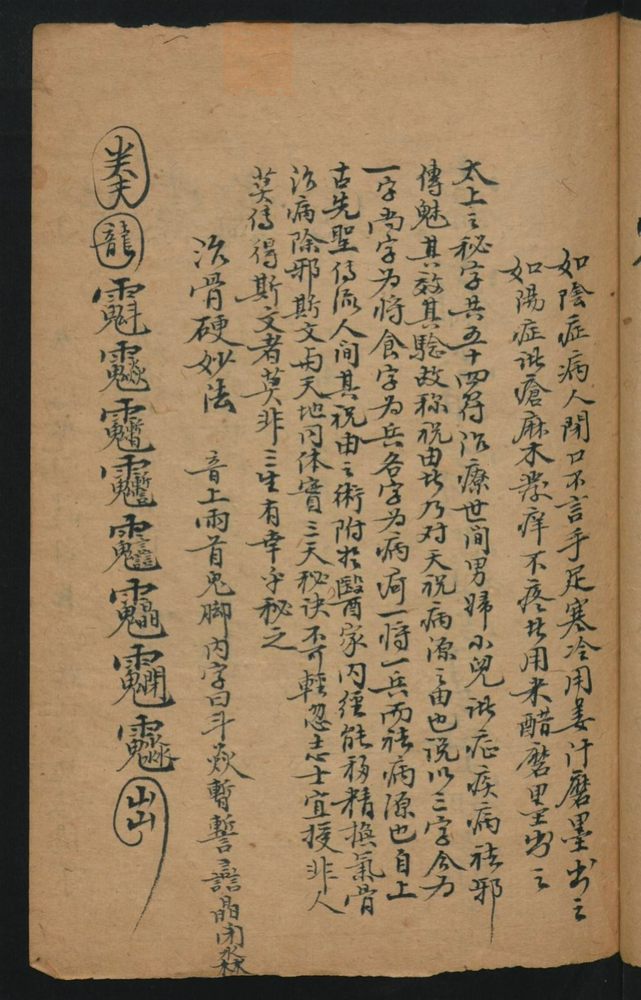 如陰症病人閉口不言手足寒冷用姜汁磨墨书之
如陽症瘡麻木癢痒不疼者用米醋磨墨书之
太上之秘字共五十四符治療世间男婦小兒症疾病祛邪
傳魅其效其騐故称祝由者乃对天祝病源之由也说以三字合为
一字尚字为将食字为兵各字为病一将一兵而祛病源也自上
古先聖传流人间其祝由之術附於醫家内径能移精換氣骨
治病除邪斯文与天地同体實三天秘诀不可輕忽志士宜授非人
莫传得斯文者莫非三生有幸乎秘之
治骨硬妙法
音上雨首鬼脚内字曰斗焱暫誓譶晶闭淼
龍